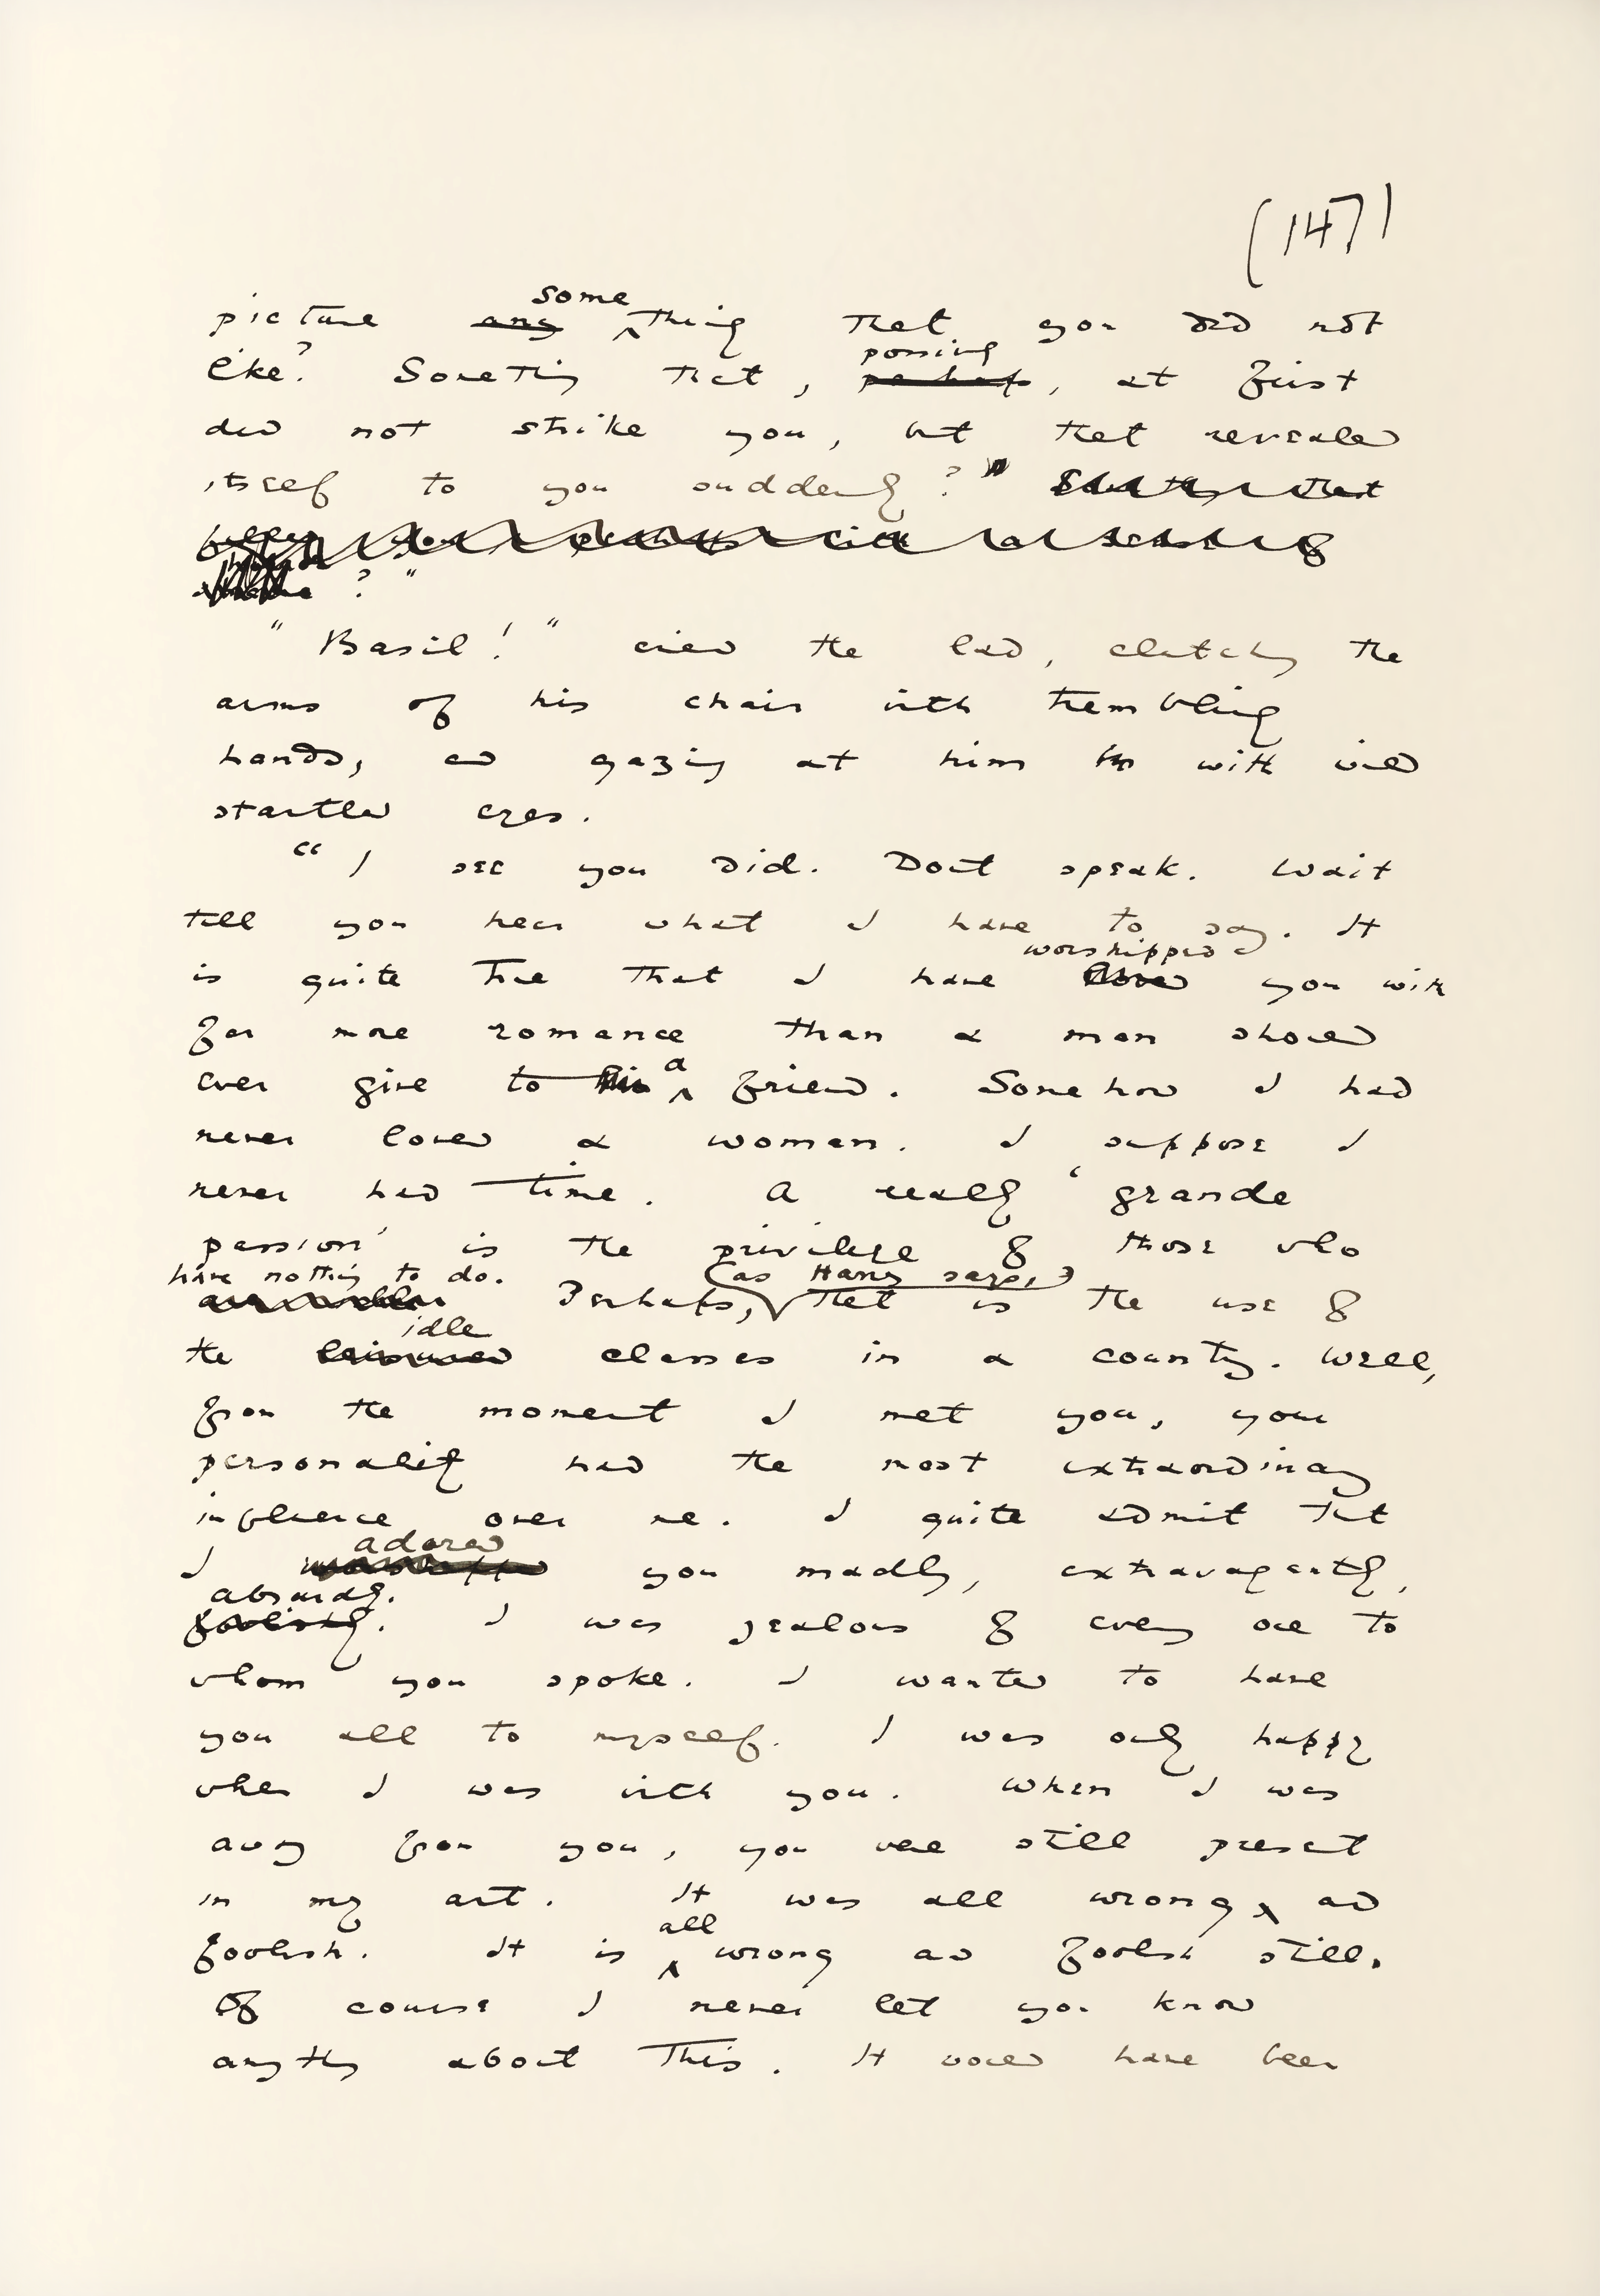 (147)
picture any something that you did not
like? Something that, perhaps possing, at first
did not strike you, but that revealed
itself to you suddenly?"
? "
"Basil!" cried the lad, clutching the
arms of his chair with trembling
hands, and gazing at him with wild
startled eyes.
"I see you did. Dont speak. Wait
till you hear what I have to say. It
is quite true that I have loved worshipped you with
far more romance than a man should
ever give to his a friend. Somehow I had
never loved a woman. I suppose I
never had time. A really 'grande
passion' is the privilege of those who
have nothing to do. Perhaps, (as Harry says,) that is the use of
the leisured idle classes in a country. Well,
from the moment I met you, your
personality had the most extraordinary
influence over me. I quite admit that
I worshipped adored you madly, extravagantly,
foolishly absurdly. I was jealous of every one to
whom you spoke. I wanted to have
you all to myself. I was only happy
when I was with you. When I was
away from you, you were still present
in my art. It was all wrong, and
foolish. It is all wrong and foolish still.
Of course I never let you know
anything about this. It would have been